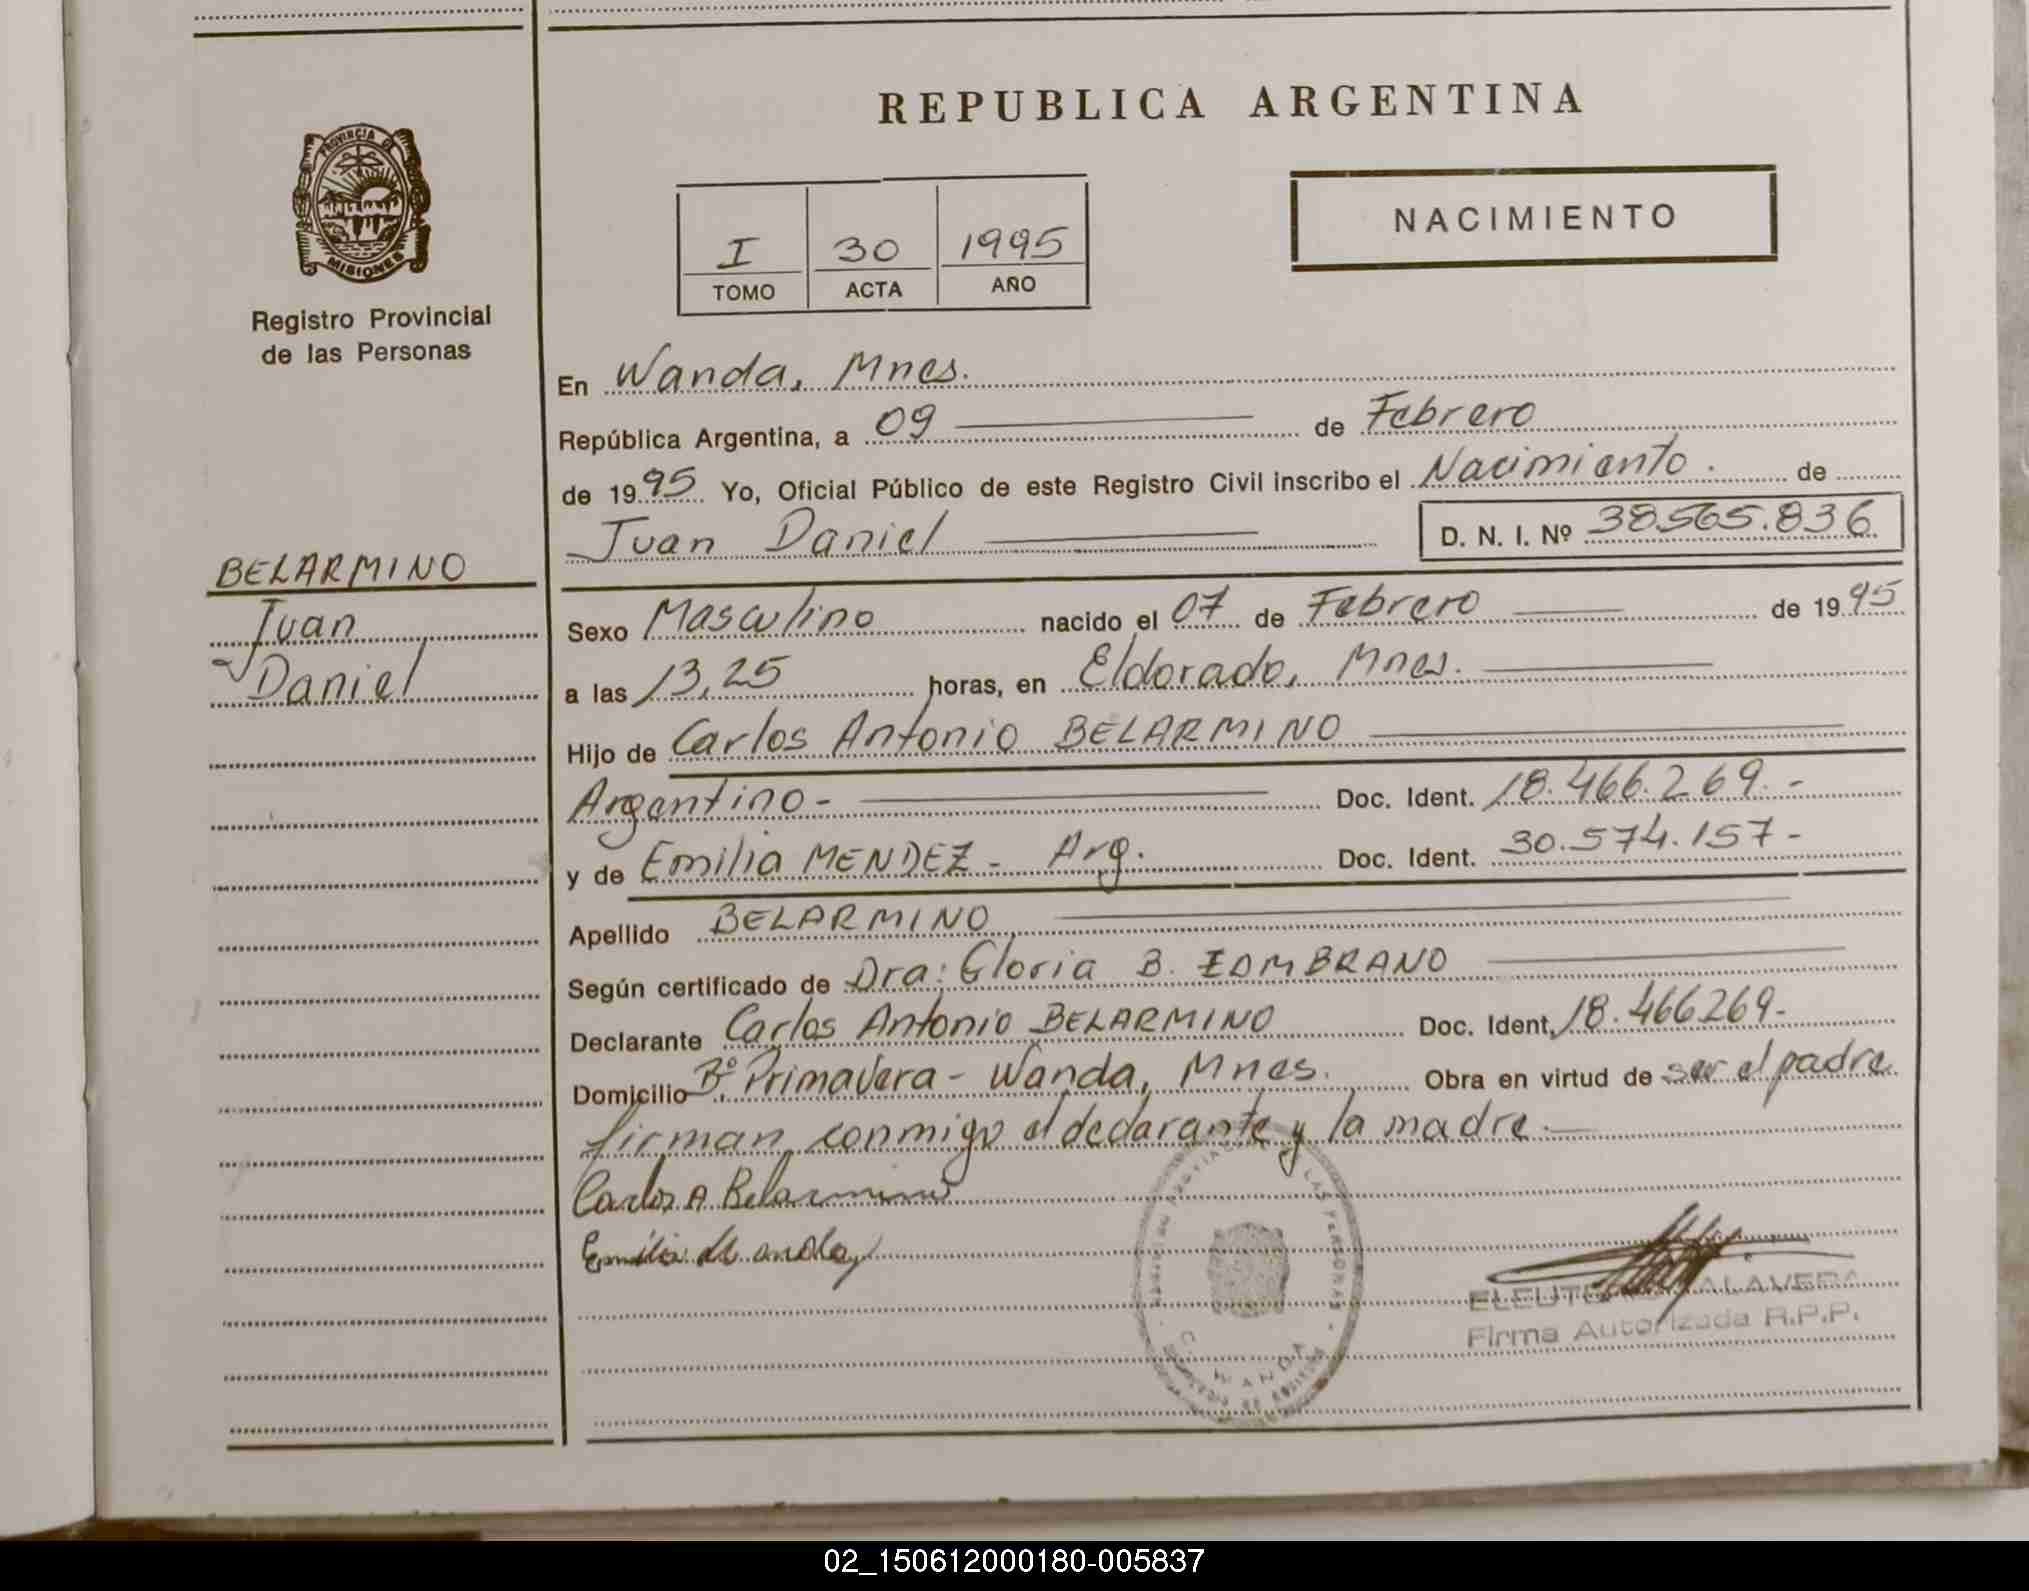 REPUBLICA ARGENTINA
PROVINCIA DE
MISIONES
Registro Provincial
de las Personas
I 30 1995
TOMO ACTA AÑO
NACIMIENTO
En Wanda, Mnes.
República Argentina, a 09 de Febrero
de 1995 Yo, Oficial Público de este Registro Civil inscribo el Nacimiento. de
Juan Daniel D. N. I. Nº 38.565.836
BELARMINO
Juan
Daniel
Sexo Masculino nacido el 07 de Febrero de 1995
a las 13,25 horas, en Eldorado, Mnes.
Hijo de Carlos Antonio BELARMINO
Argentino - Doc. Ident. 18.466.269.-
y de Emilia MENDEZ - Arg. Doc. Ident. 30.574.157-
Apellido BELARMINO
Según certificado de Dra: Gloria B. ZOMBRANO
Declarante Carlos Antonio BELARMINO Doc. Ident. 18.466269-
Domicilio Bº Primavera - Wanda, Mnes. Obra en virtud de ser el padre
firman conmigo el declarante y la madre.
Carlos A. Belarmino
Emilia
LAS PERSONAS
WANDA
Firma Autorizada R.P.P.
02_150612000180-005837